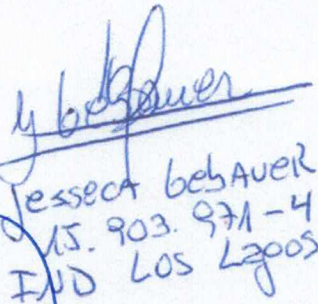 Jesseca GebAueR
15.903.971-4
IND LOS LAgOS